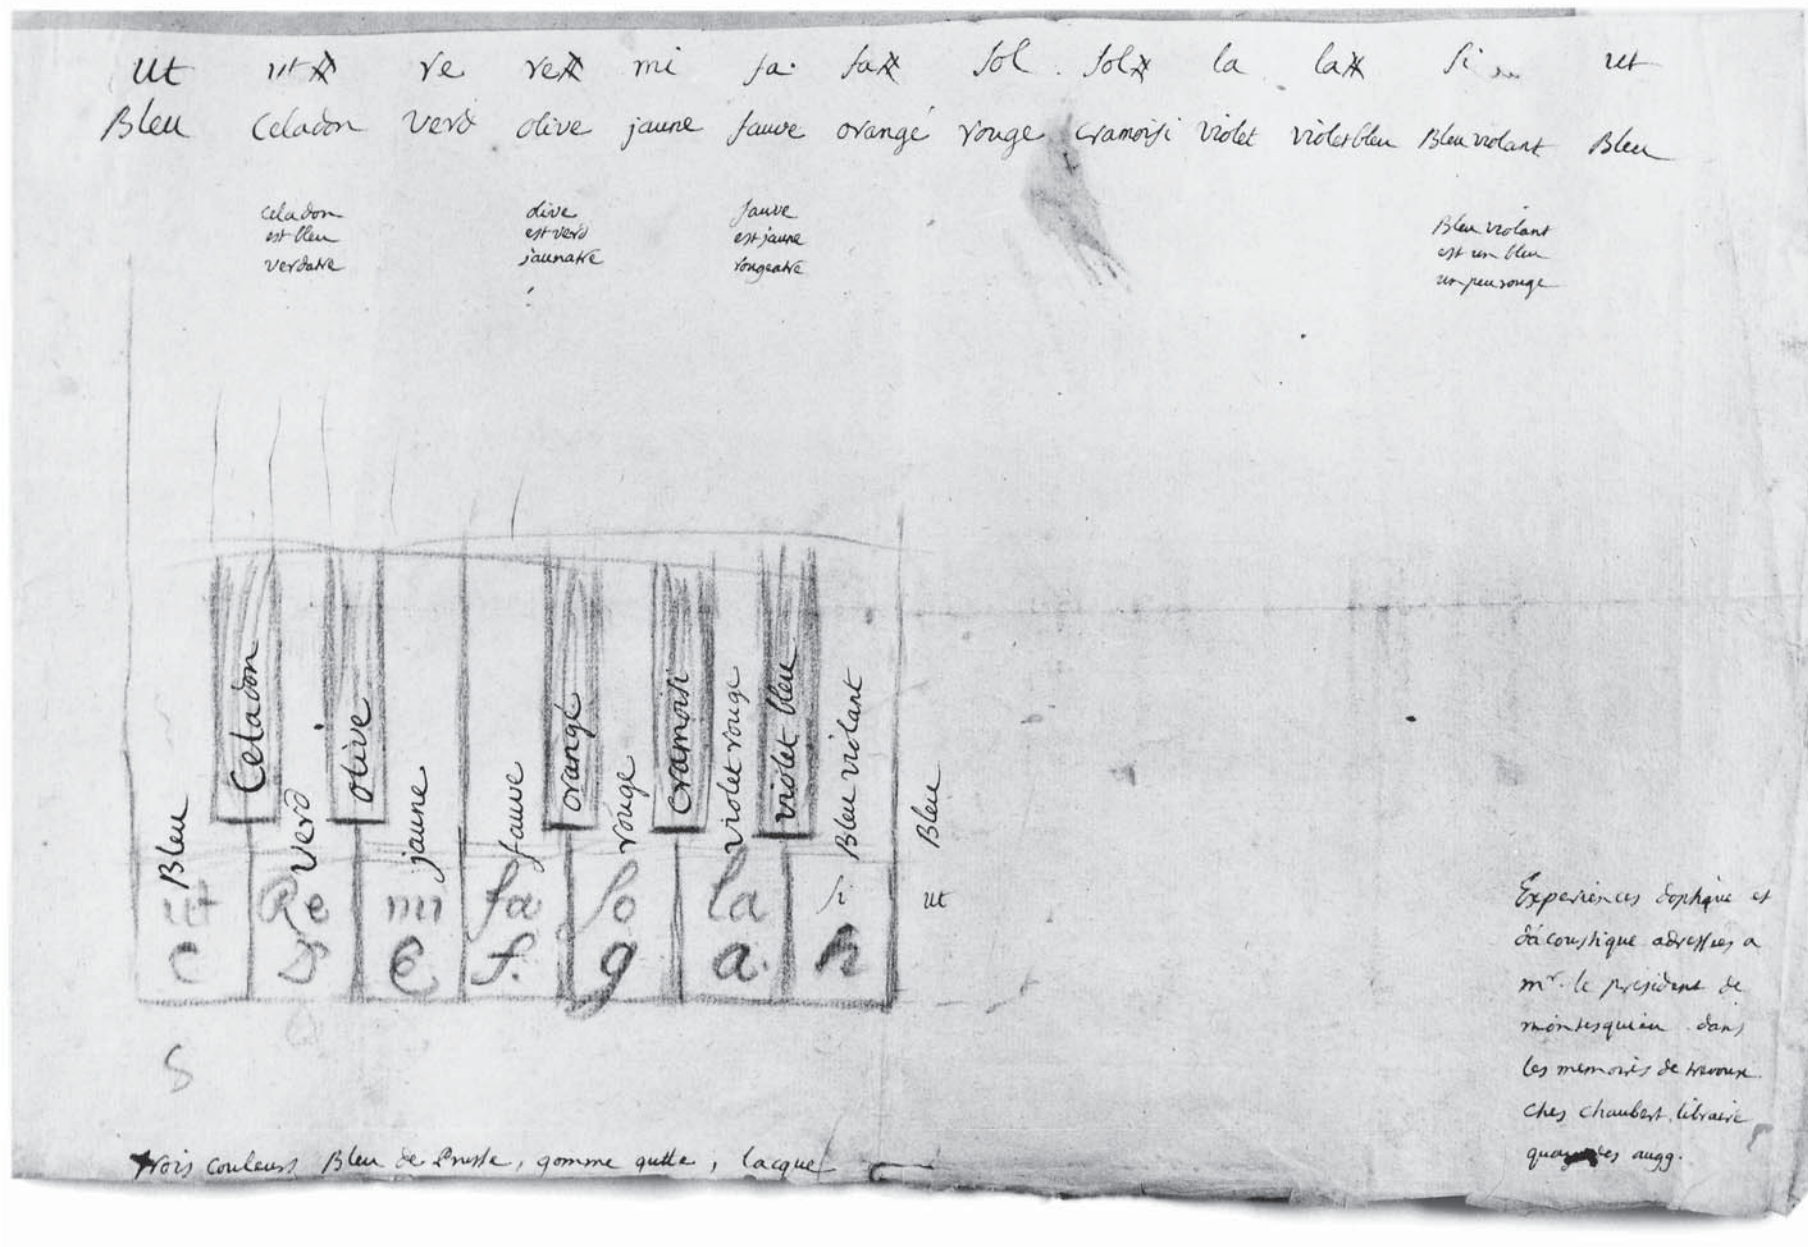 ut ut# re re# mi fa fa# sol sol# la la# si ut
Bleu Celadon verd olive jaune fauve orangé rouge cramoisi violet violet bleu Bleu violant Bleu
celadon
est bleu
verdatre
olive
est verd
jaunatre
fauve
est jaune
rougeatre
Bleu violant
est un bleu
un peu rouge
Bleu
Celadon
verd
olive
jaune
fauve
orangé
rouge
cramoisi
violet rouge
violet bleu
Bleu violant
Bleu
ut Re mi fa so la si ut
C D E f. g a. h
S
trois couleurs Bleu de Prusse, gomme gutte, lacque
Experiences doptique et
dácoustique adressées a
mr. le president de
montesquieu dans
les memoires de trevoux
ches chaubert, libraire
quay des augg.